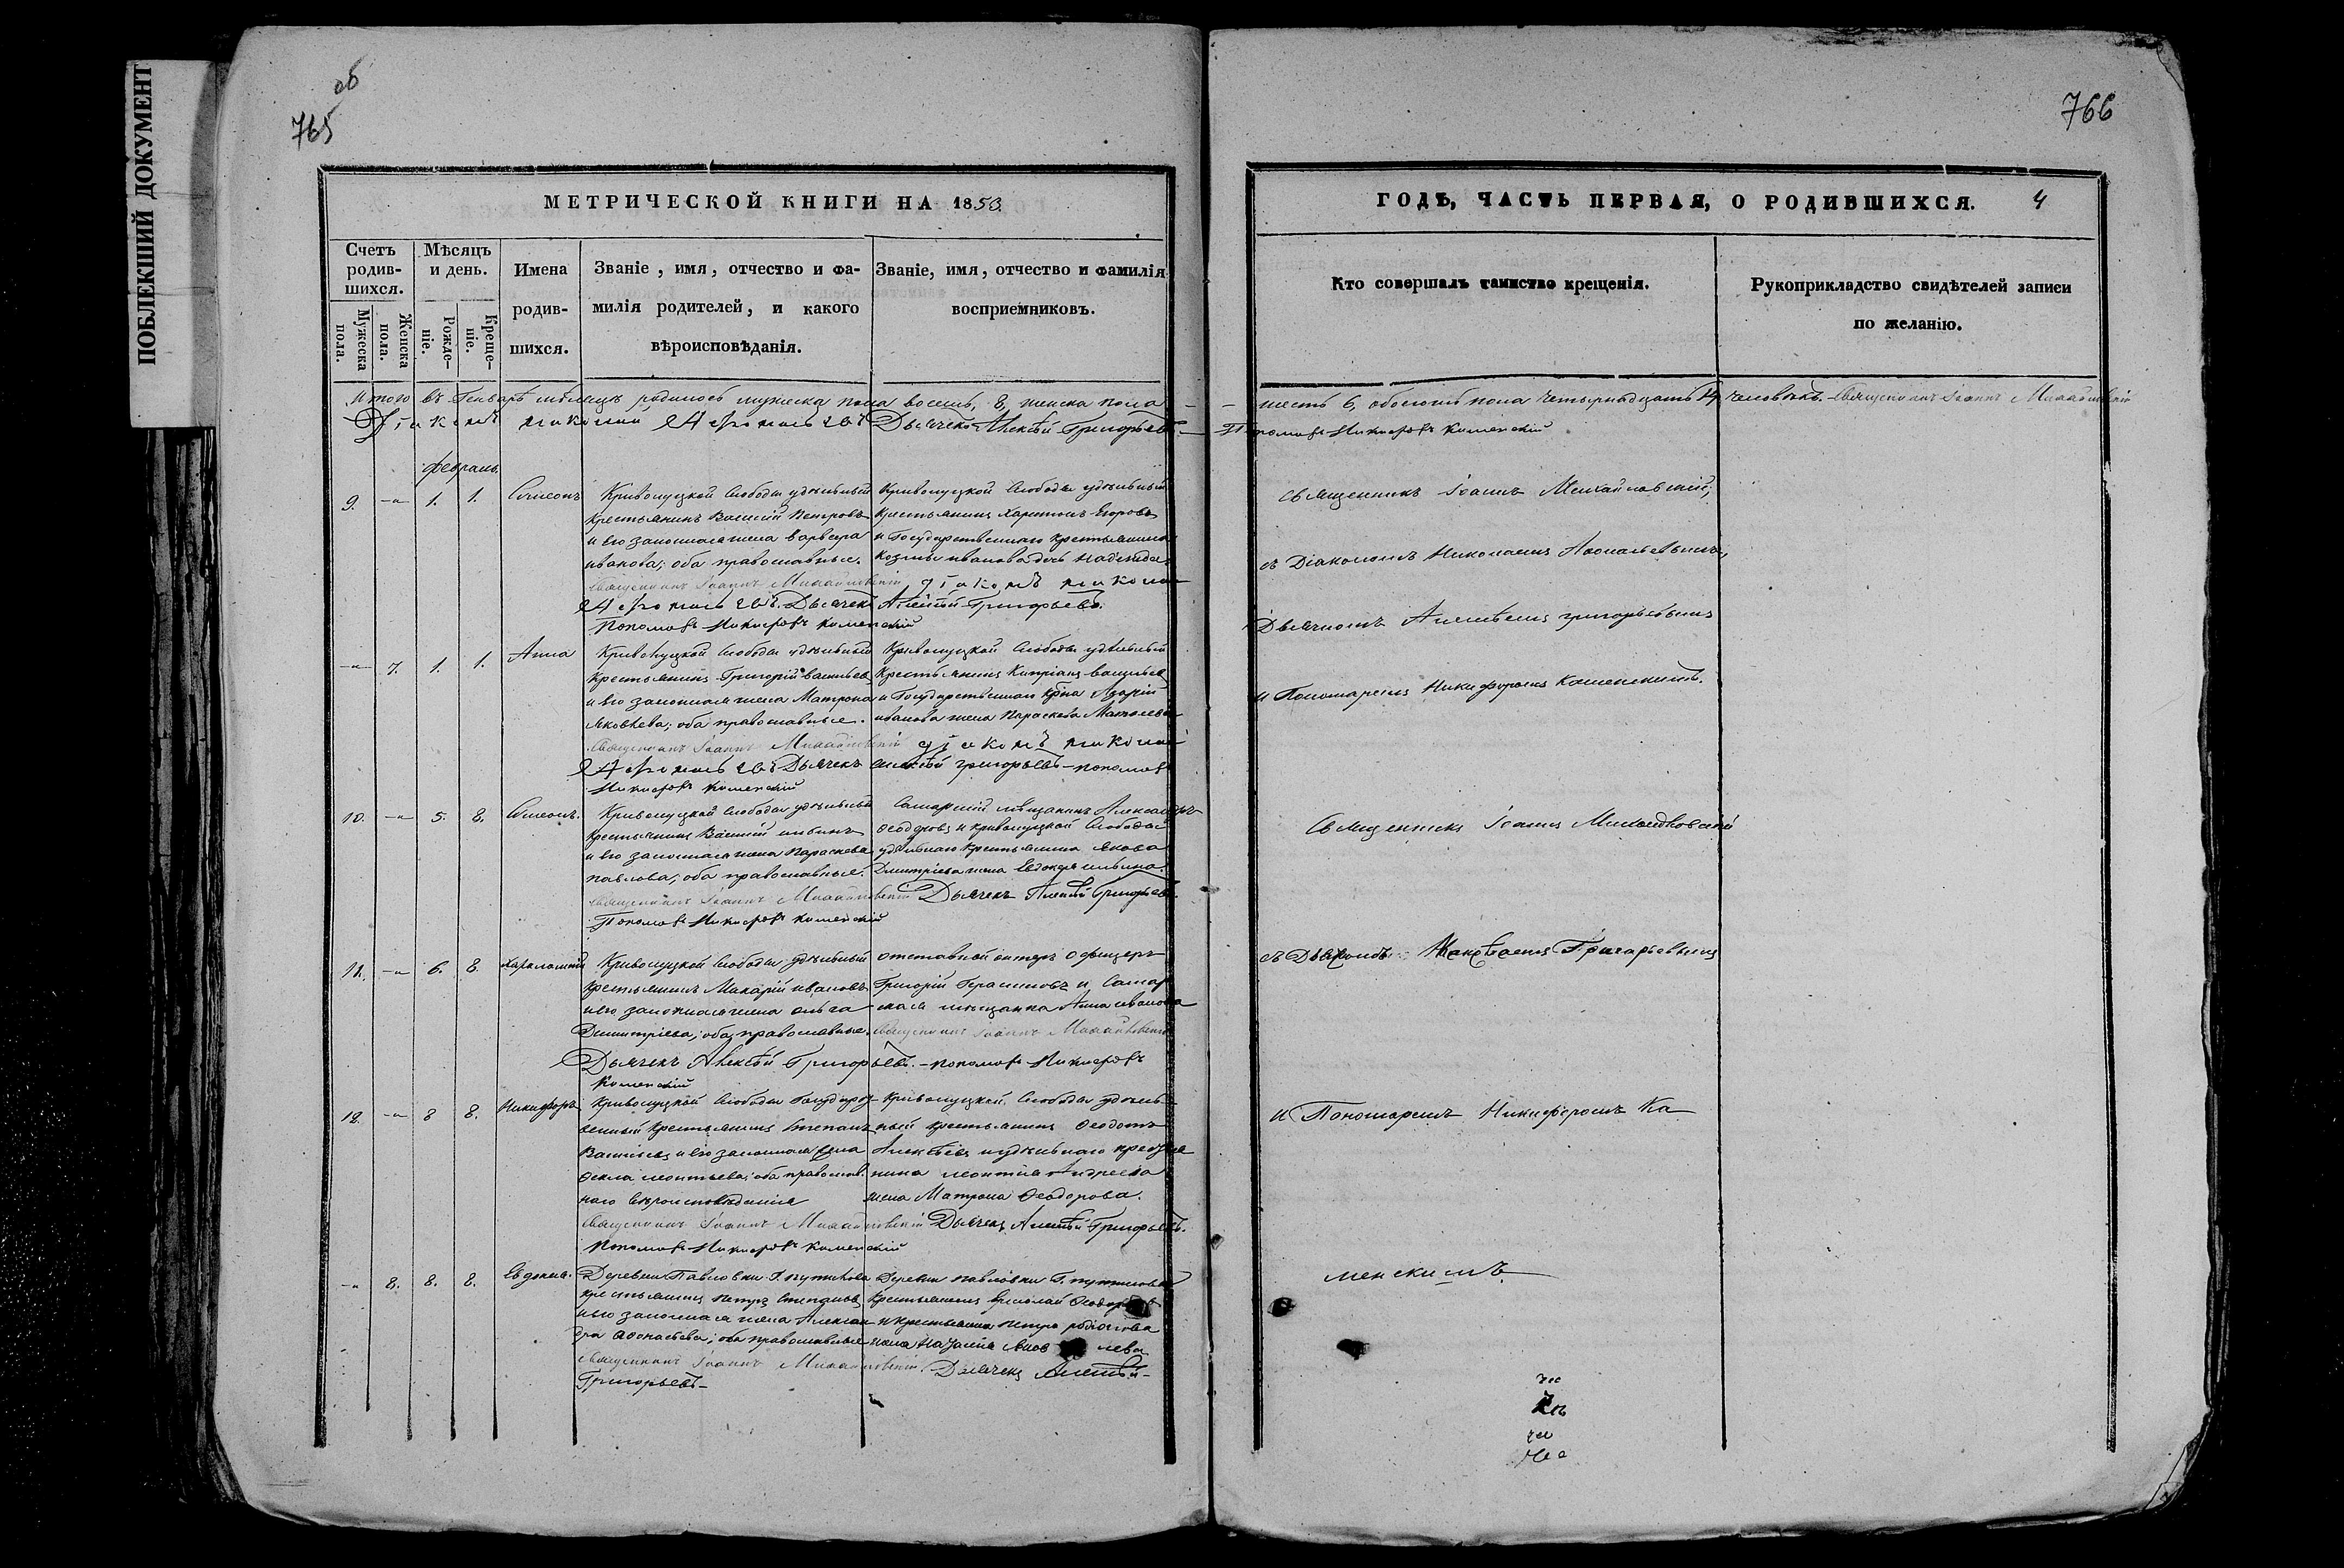 ПОБЛЕКШИЙ ДОКУМЕНТ
об
765
МЕТРИЧЕСКОЙ КНИГИ НА 1853.
Счетъ родив-шихся.
Мужеска пола.
Женска пола.
Мѣсяцъ и день.
Рожде-ніе.
Креще-ніе.
Имена родив-шихся.
Званіе, имя, отчество и фа-
милія родителей, и какого
вѣроисповѣданія.
Званіе, имя, отчество и фамилія
восприемниковъ.
Итого въ Генварѣ мѣсяцѣ родилось мужеска пола восемь, 8, женска пола
Діаконъ Николай Дьячекъ Алексѣй Григорьевъ
февраль
9. -"- 1. 1. Симеонъ
Криволуцкой Слободы удѣльный
крестьянинъ Василій Петровъ
и его законная жена Варвара
иванова; оба православные.
Криволуцкой Слободы удѣльный
крестьянинъ Харитонъ Егоровъ
и Государственнаго крестьянина
Козмы иванова дочь Надежда
Священникъ Іоаннъ Михайловскій діаконъ Николай
Дьячекъ Алексѣй Григорьевъ.
Пономарь Никифоръ Каменскій
-"- 7. 1. 1. Анна
Криволуцкой Слободы удѣльный
крестьянинъ Григорій Васильевъ
и его законная жена Матрона
Яковлева; оба православные.
Криволуцкой Слободы удѣльный
крестьянинъ Кипріанъ Васильевъ
и Государственнаго кр-на Азарія
иванова жена Параскева
Священникъ Іоаннъ Михайловскій діаконъ Николай
Дьячекъ Алексѣй Григорьевъ - пономарь
Никифоръ Каменскій
10. -"- 5. 8. Симеонъ.
Криволуцкой Слободы удѣльный
крестьянинъ Василій ильинъ
и его законная жена Параскева
павлова; оба православные.
Самарскій мѣщанинъ Александръ
Ѳеодоровъ и Криволуцкой Слободы
удѣльнаго крестьянина Якова
Димитріева жена Евдокія ильина.
Священникъ Іоаннъ Михайловскій Дьячекъ Алексѣй Григорьевъ
Пономарь Никифоръ Каменскій
11. -"- 6. 8. Харлампій
Криволуцкой Слободы удѣльный
крестьянинъ Макарій ивановъ
и его законная жена ольга
Димитріева; оба православные.
отставной унтеръ офицеръ
Григорій Герасимовъ и Самар
ская мѣщанка Анна иванова
Священникъ Іоаннъ Михайловскій
Дьячекъ Алексѣй Григорьевъ. - пономарь Никифоръ
Каменскій
12. -"- 8 8. Никифоръ
Криволуцкой Слободы Государ
венный крестьянинъ Степанъ
Васильевъ и его законная жена
Ѳекла леонтьева; оба православ
наго вѣроисповѣданія
Криволуцкой Слободы удѣль
ный крестьянинъ Ѳедотъ
Алексѣевъ и удѣльнаго крестья
нина леонтія Андреева
жена Матрона Ѳеодорова.
Священникъ Іоаннъ Михайловскій Дьячекъ Алексѣй Григорьевъ.
Пономарь Никифоръ Каменскій
-"- 8. 8. 8. Евдокія.
Деревни Павловки Г. путилова
крестьянинъ Петръ Степановъ
и его законная жена Алексан
дра Аѳонасьева; оба православные
Деревни павловки Г. путилова
крестьянинъ Николай Ѳеодоровъ
и крестьянина Петра родіонова
жена Наталія лева
Священникъ Іоаннъ Михайловскій. Дьячекъ Алексѣй
Григорьевъ
766
ГОДЪ, ЧАСТЬ ПЕРВАЯ, О РОДИВШИХСЯ. 4
Кто совершалъ таинство крещенія.
Рукоприкладство свидѣтелей записи
по желанію.
шесть 6, обоего пола четырнадцать 14 человѣкъ. Священникъ Іоаннъ Михайловскій
Пономарь Никифоръ Каменскій
Священникъ Іоаннъ Михайловскій;
съ Діакономъ Николаемъ Аѳонасьевымъ,
Дьячкомъ Алексѣемъ Григорьевымъ
и Пономаремъ Никифоромъ Каменскимъ.
Священникъ Іоаннъ Михайловскій
съ Дьячкомъ Алексѣемъ Григорьевымъ
и Пономаремъ Никифоромъ Ка
менскимъ.